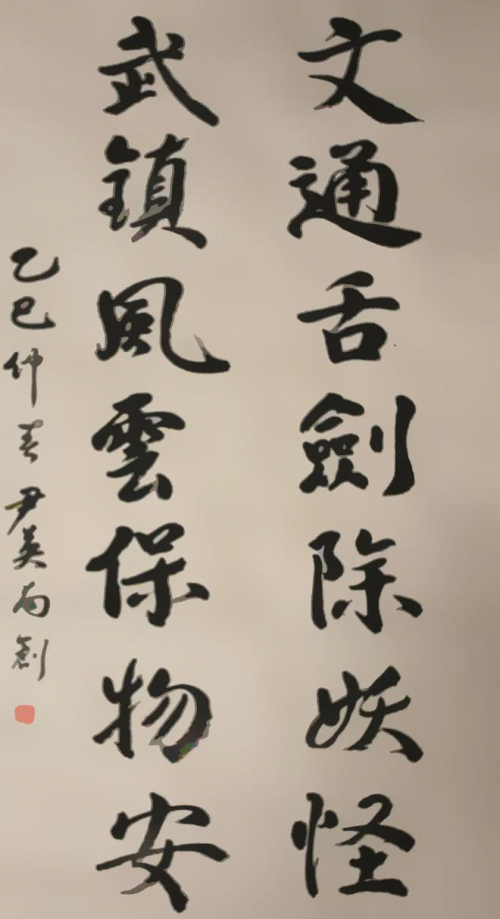 文通舌劍除妖怪
武鎮風雲保物安
乙巳仲春尹英南創